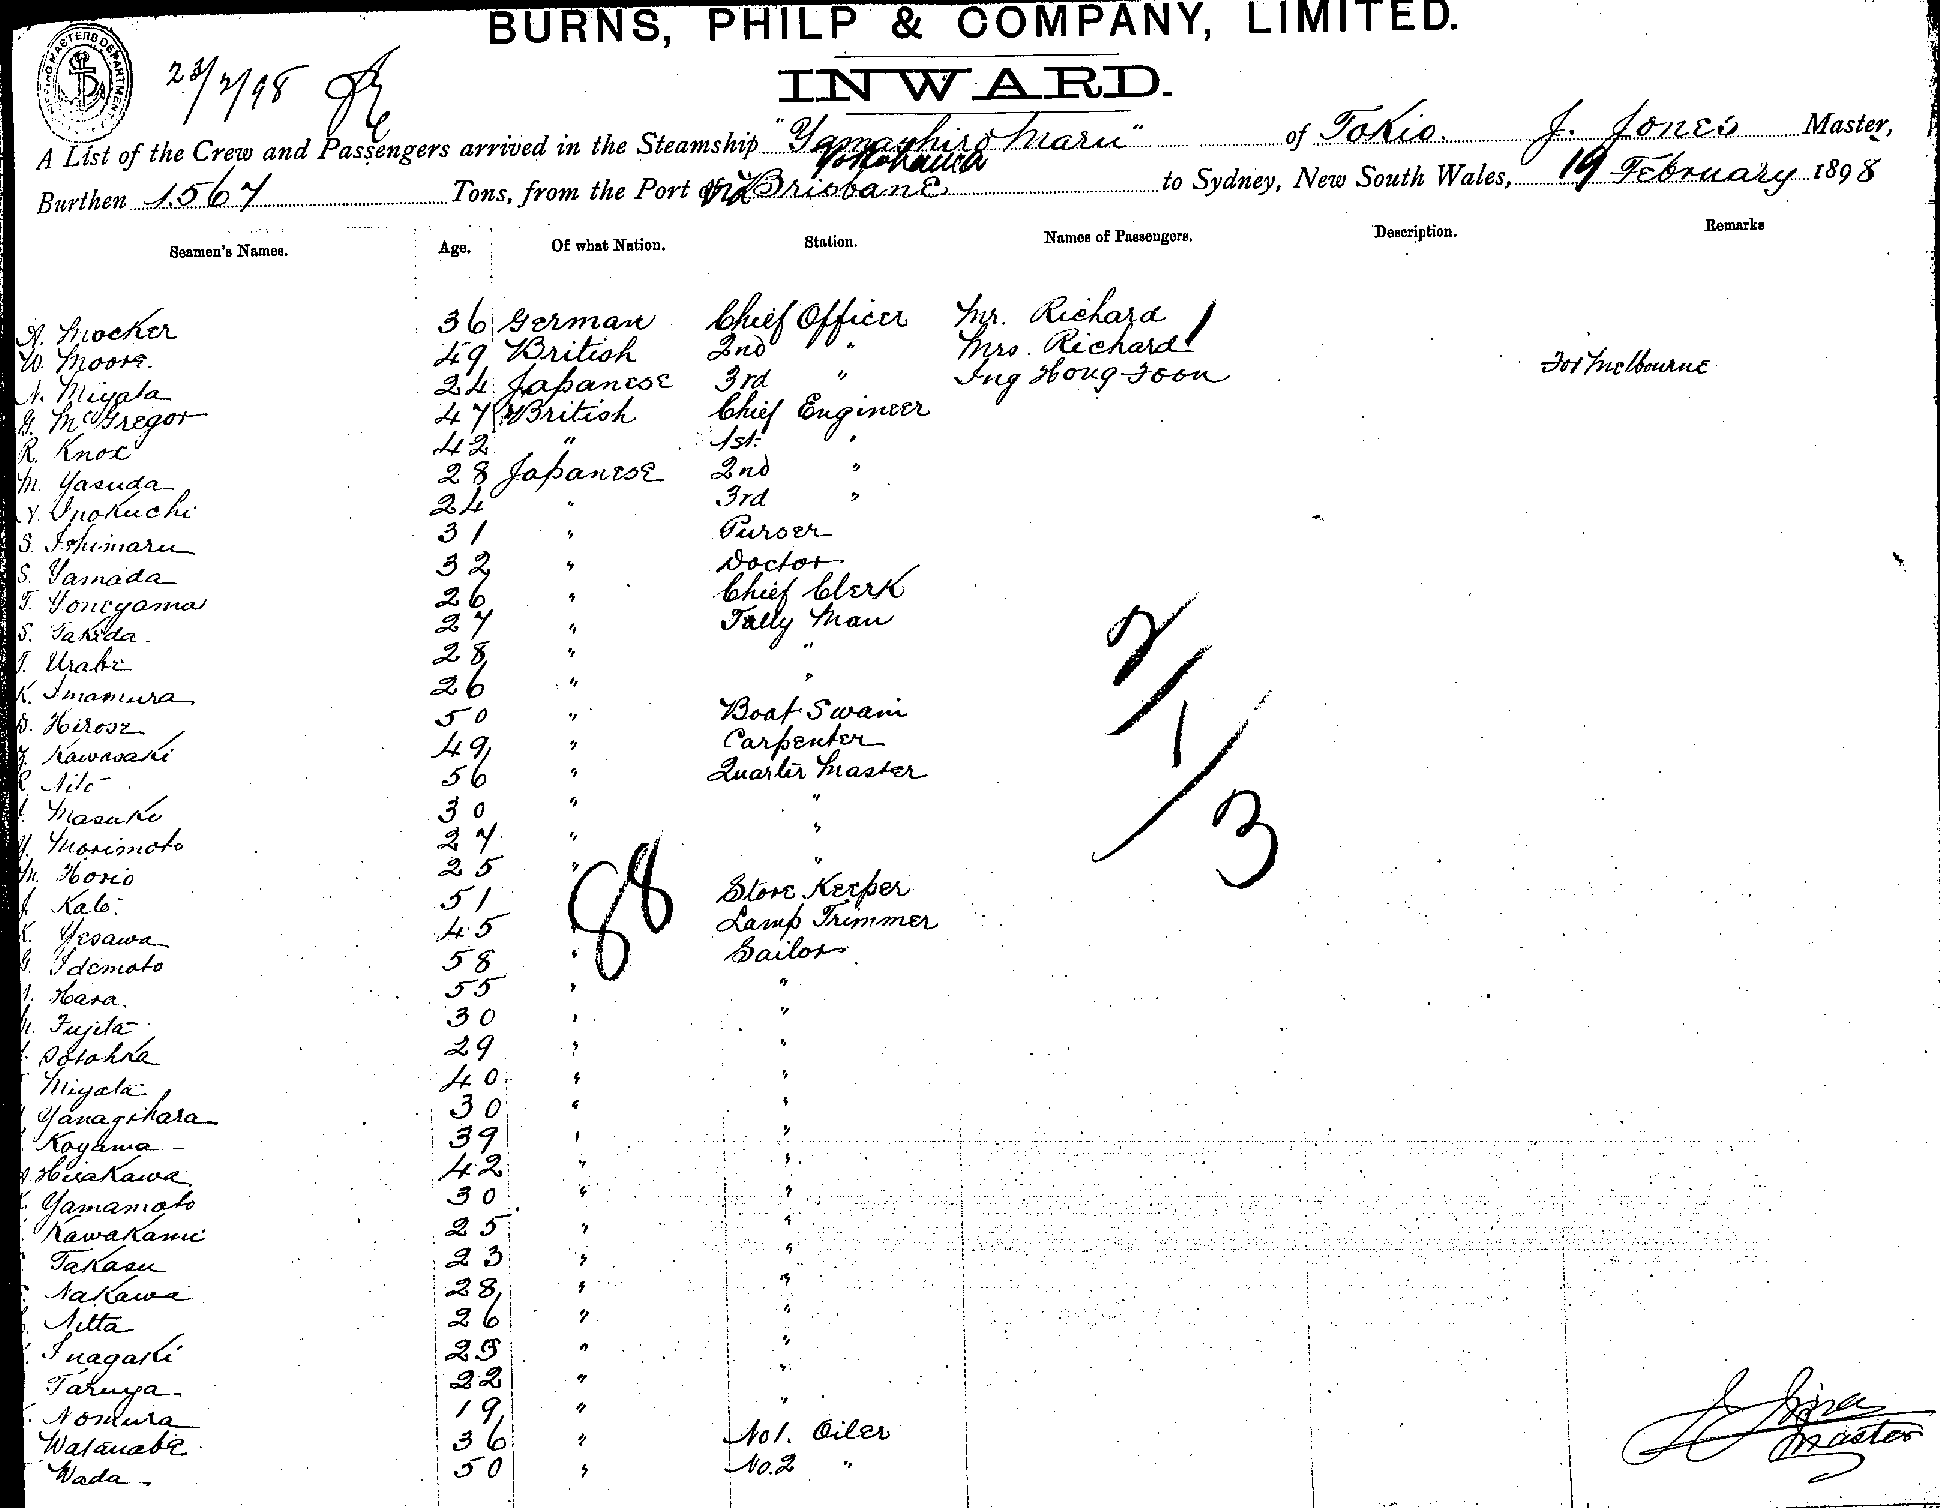 BURNS, PHILP & COMPANY, LIMITED.
INWARD.
23/2/98
A List of the Crew and Passengers arrived in the Steamship "Yamashiro Maru" of Tokio. J. Jones Master,
Yokohama
Burthen 1567 Tons, from the Port of via Brisbane to Sydney, New South Wales, 19 February 1898
Seamen's Names. Age. Of what Nation. Station. Names of Passengers. Description. Remarks
A. Mocker 36 German Chief Officer Mr. Richard
W. Moore. 49 British 2nd " Mrs. Richard For Melbourne
N. Miyata 24 Japanese 3rd " Ing Hong Foon
G. McGregor 47 British Chief Engineer
R. Knox 42 " 1st "
M. Yasuda 28 Japanese 2nd "
Y. Inokuchi 24 " 3rd "
S. Ishimaru 31 " Purser
S. Yamada 32 " Doctor
T. Yoneyama 26 " Chief Clerk
S. Takeda. 27 " Tally Man
T. Urabe 28 " "
K. Imamura 26 " "
Hirose 50 " Boat Swain
Kawasaki 49 " Carpenter
Nito 56 " Quarter Master
Masuki 30 " "
Morimoto 27 " "
M. Horio 25 " "
Kato. 51 Store Keeper
88
K. Yesawa 45 " Lamp Trimmer
Idemoto 58 " Sailor
Hara. 55 " "
Fujita 30 " "
29 " "
Miyata 40 " "
Yanagihara 30 " "
Koyama 39 " "
Hirakawa 42 " "
Yamamoto 30 " "
Kawakami 25 " "
Takasu 23 " "
Nakawa 28 " "
Nitta 26 " "
Inagaki 23 " "
Taruya 22 " "
Nomura 19 " "
Watanabe 36 " No 1. Oiler
Wada 50 " No. 2 "
2/1/3
Master